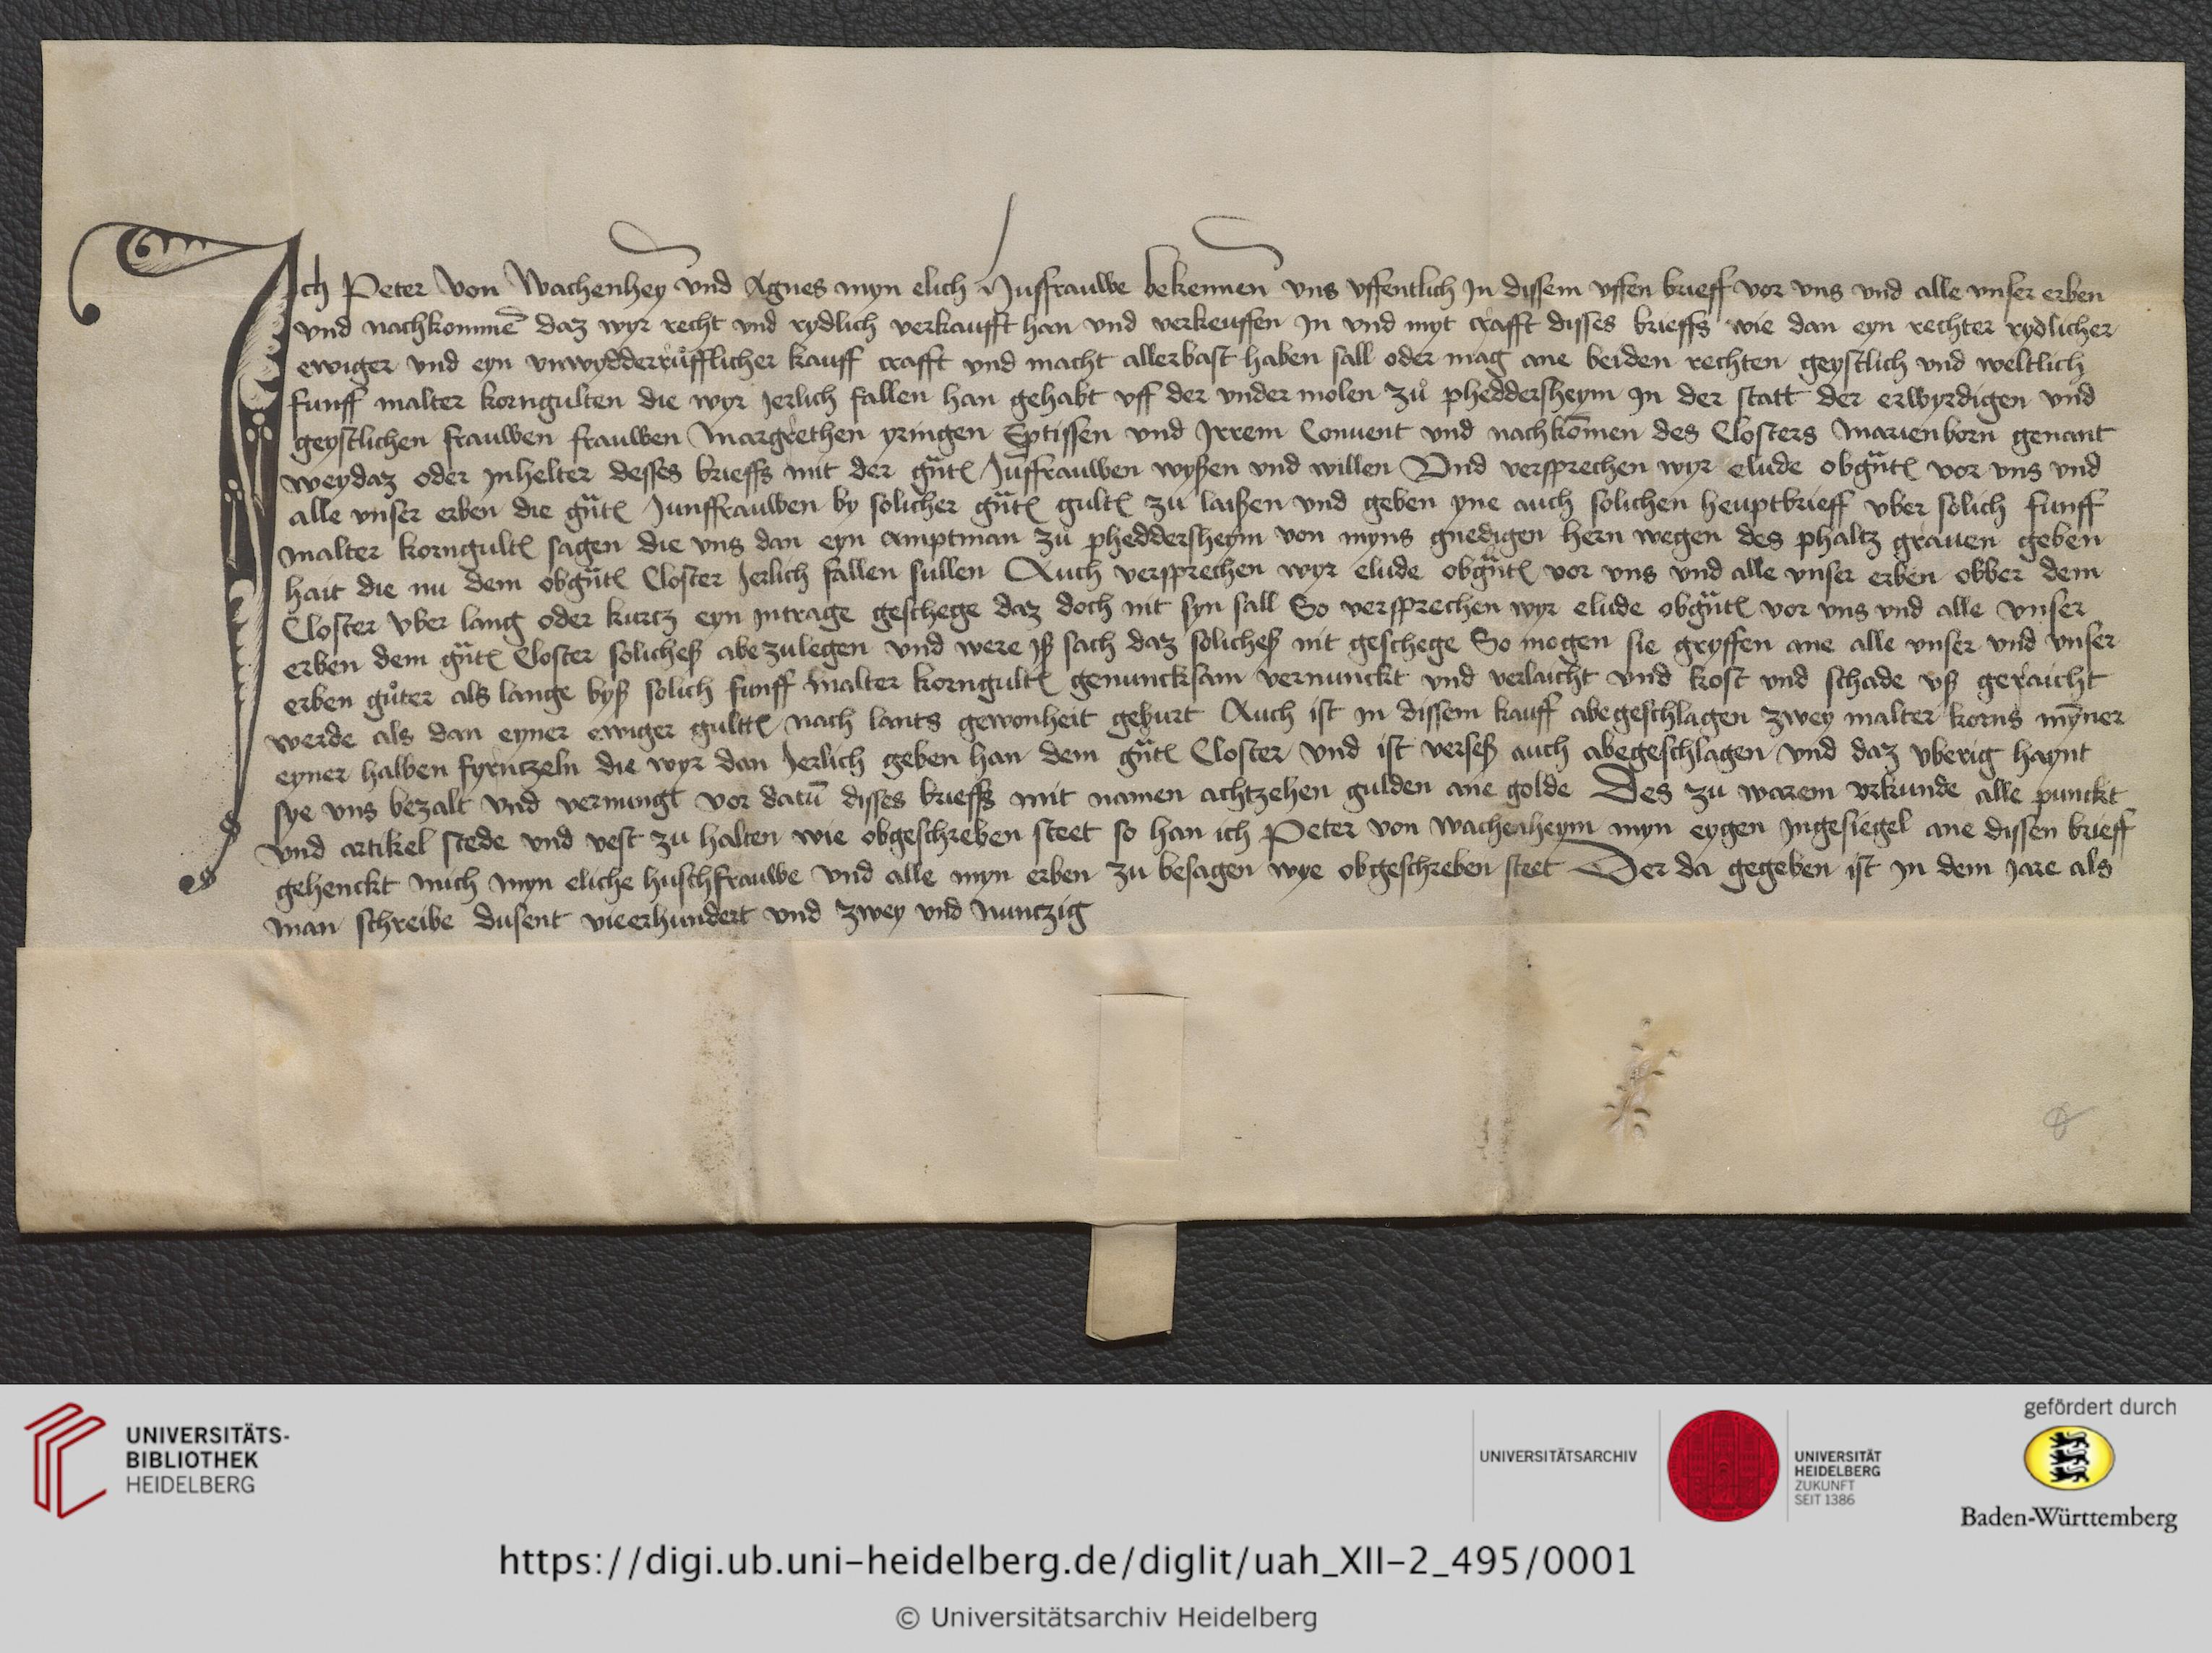 Ich Peter von Wachenhey vnd Agnes myn elich Huffrauwe bekennen vns vffentlich In dissem vffen brieff vor vns vnd alle vnser erben
vnd nachkommē daz wyr recht vnd rydlich verkaufft han vnd verkeuffen In vnd myt crafft disses brieffs wie dan eyn rechter rydlicher
ewiger vnd eyn vnwydderrůfflicher kauff crafft vnd macht allerbast haben sall oder mag ane beiden rechten geystlich vnd weltlich
funff malter korngulten die wyr Jerlich fallen han gehabt vff der vnder molen zů pheddersheym In der statt der erwyrdigen vnd
geystlichen frauwen frauwen Margrethen yringen Eptissen vnd Irrem Conuent vnd nachkōmen des Closters Marienborn genant
weydaz oder Inhelter desses brieffs mit der gn̄t Juffrauwen wyßen vnd willen Vnd versprechen wyr elude obgn̄t vor vns vnd
alle vnser erben die gn̄t Junffrauwen by solicher gn̄t gult zu laißen vnd geben yne auch solichen heuptbrieff vber solich funff
malter korngult sagen die vns dan eyn amptman zů pheddersheym von myns gnedigen hern wegen des phaltz grauen geben
hait die nu dem obgn̄t Closter Jerlich fallen sullen Auch versprechen wyr elude obgn̄t vor vns vnd alle vnser erben obber dem
Closter vber lang oder kurtz eyn Intrage geschege daz doch nit syn sall So versprechen wyr elude obgn̄t vor vns vnd alle vnser
erben dem gn̄t Closter solicheß abezulegen vnd were Iß sach daz solicheß nit geschege So mogen sie gryffen ane alle vnser vnd vnser
erben gůter als lange byß solich funff malter korngult genuncksam vernunckt vnd verlaicht vnd kost vnd schade vß geraicht
werde als dan eyner ewiger gultt nach lants gewonheit geburt Auch ist In dissem kauff abegeschlagen zwey malter korns mȳner
eyner halben fyrntzeln die wyr dan Jerlich geben han dem gn̄t Closter vnd ist verseß auch abegeschlagen vnd daz vberig haynt
sye vns bezalt vnd vernungt vor datū disses brieffs mit namen achtzehen gulden ane golde Des zu warem vrkunde alle punckt
vnd artikel stede vnd vest zu halten wie obgeschreben steet so han ich Peter von Wachenheym myn eygen Ingesiegel ane dissen brieff
gehenckt mich myn eliche huschfrauwe vnd alle myn erben zu besagen wye obgeschreben steet Der da gegeben ist In dem Jare als
man schreibe dusent vieerhundert vnd zwey vnd Nuntzig
UNIVERSITÄTS-
BIBLIOTHEK
HEIDELBERG
UNIVERSITÄTSARCHIV
UNIVERSITÄT
HEIDELBERG
ZUKUNFT
SEIT 1386
gefördert durch
Baden-Württemberg
https://digi.ub.uni-heidelberg.de/diglit/uah_XII-2_495/0001
© Universitätsarchiv Heidelberg